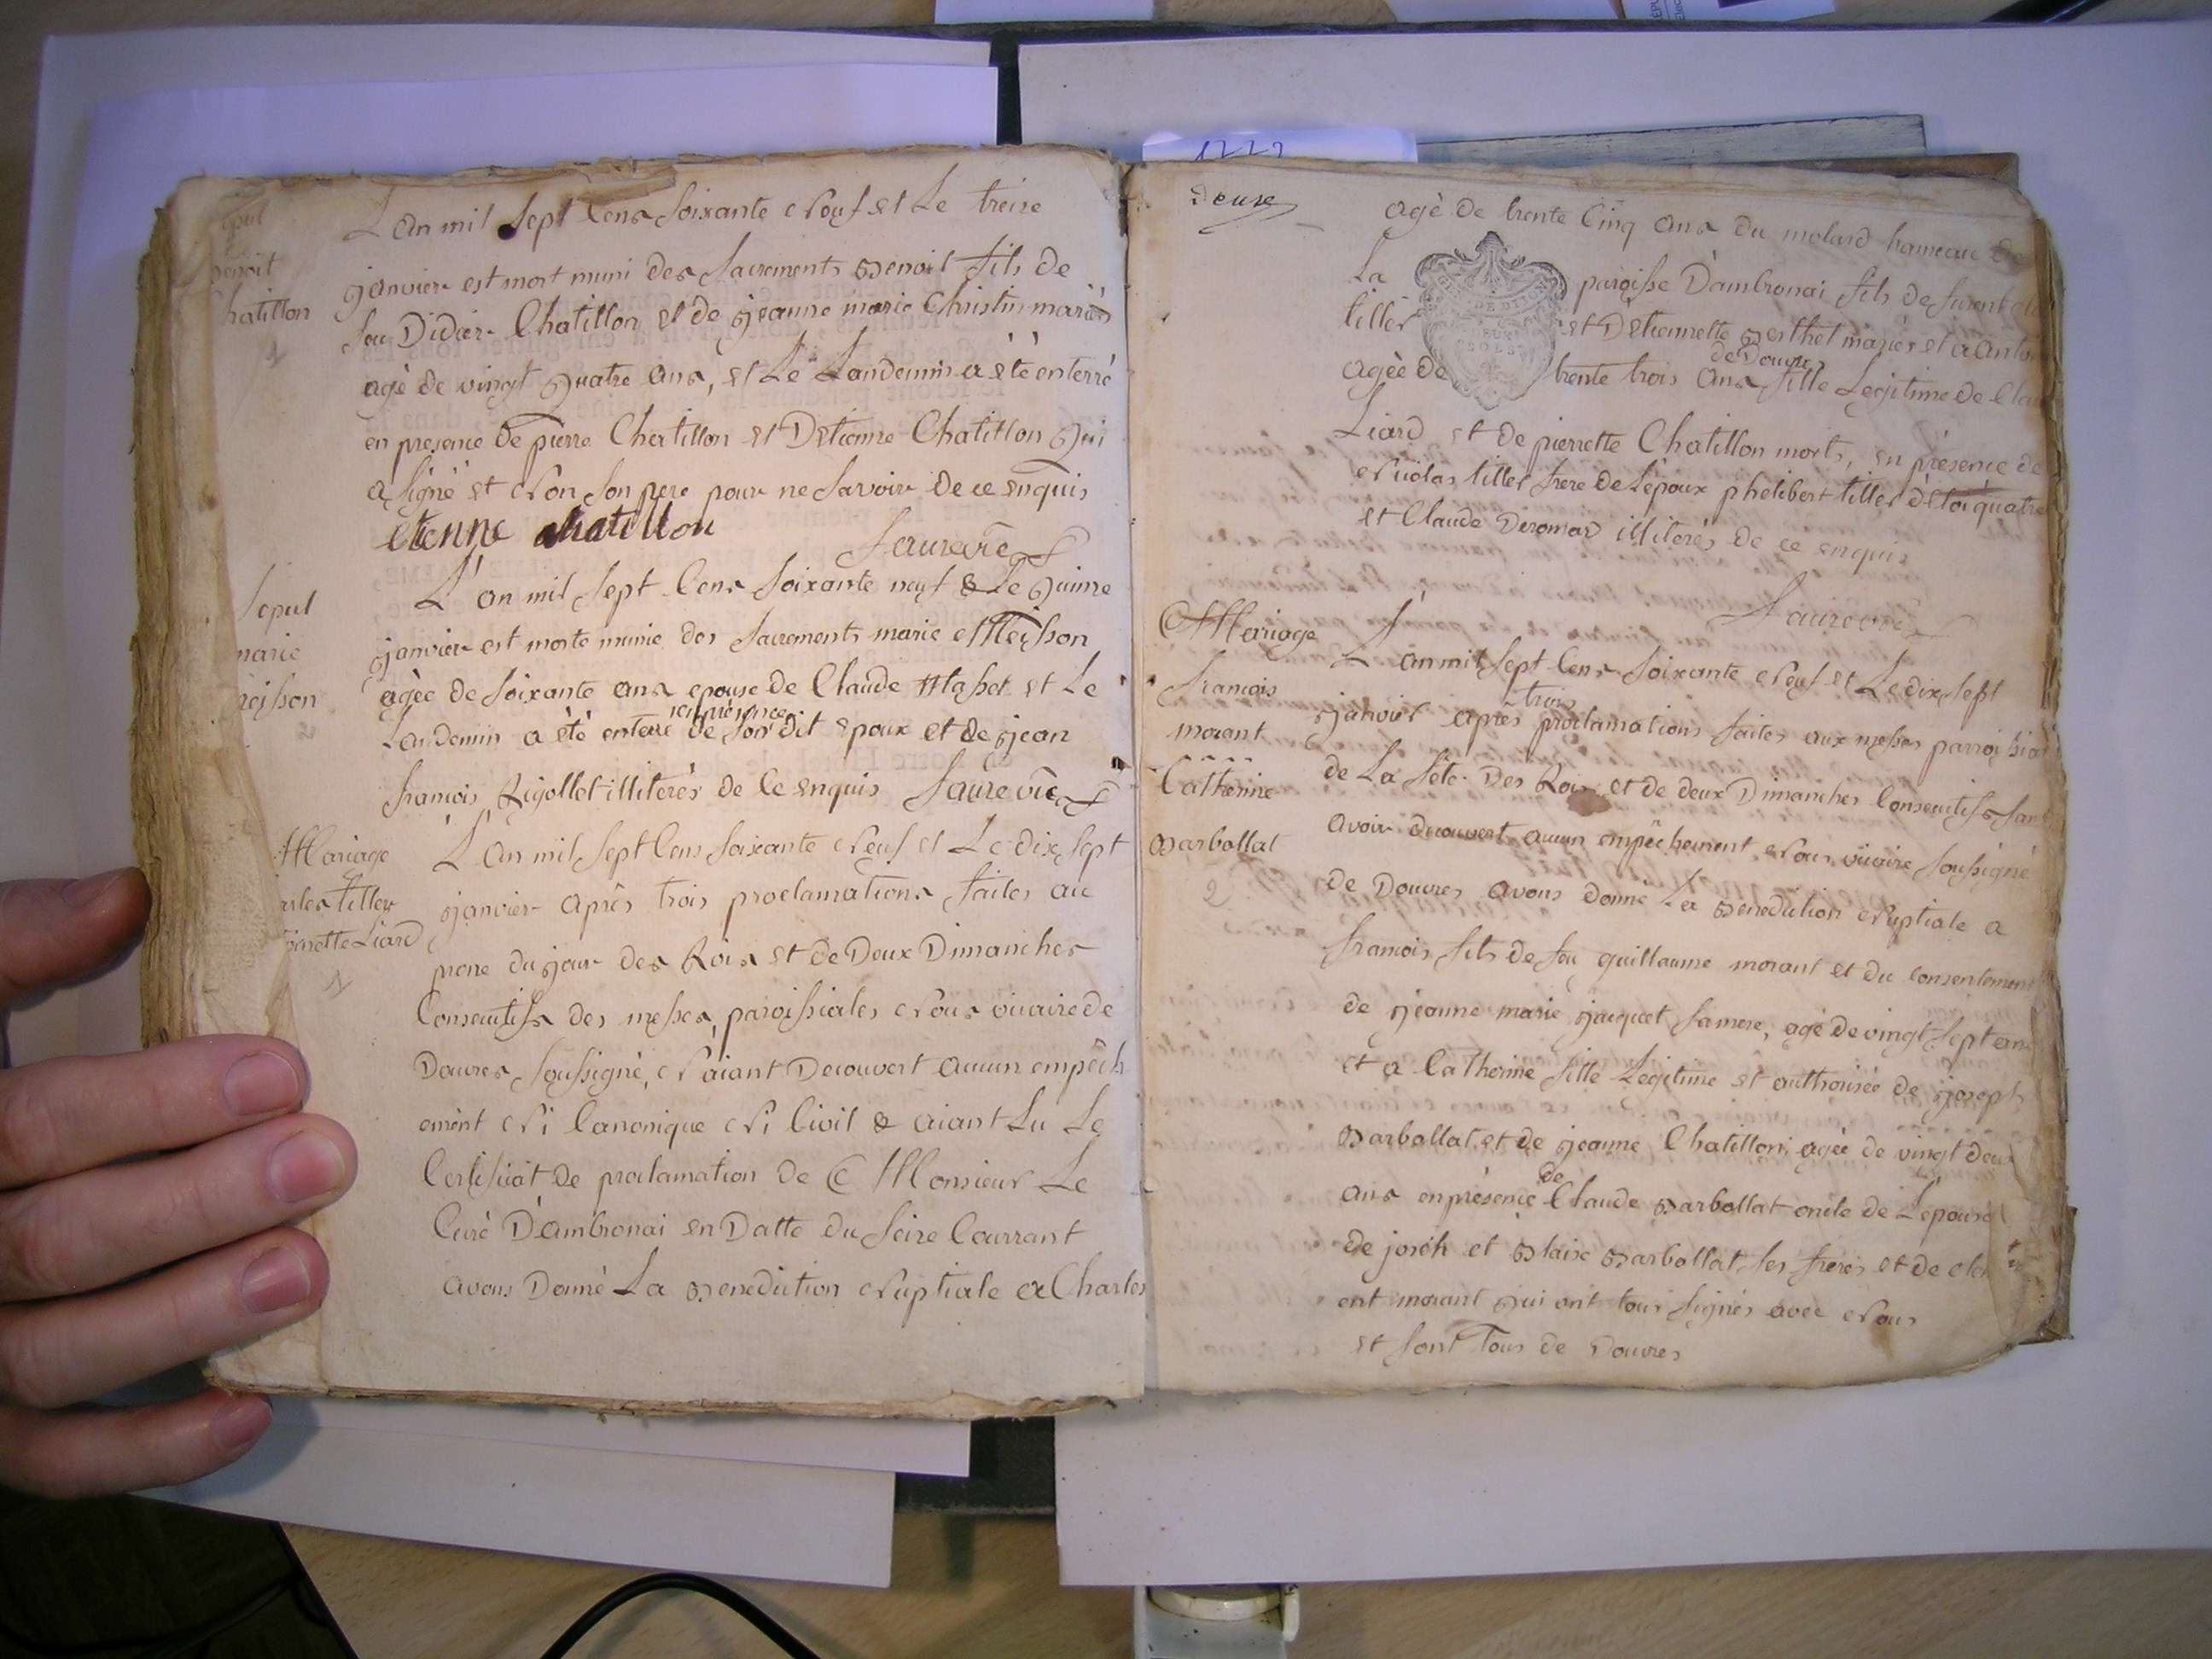 Sepul
Benoit
Chatillon
1
L'an mil sept Cens soixante Neuf et Le treize
janvier est mort muni des sacrements Benoit fils de
feu Didier Chatillon et de jeanne marie Christin mariés
agé de vingt quatre ans, et Le Landemin a été enterré
en presence de pierre Chatillon et D'etienne Chatillon Qui
a signé et Non son pere pour ne savoir de ce enquis
etienne chatillon
Faure vic
Sepul
marie
Meisson
2
L'an mil sept Cens soixante neuf & Le Quinze
janvier est morte munie des sacrements marie Meisson
agée de soixante ans epouse de Claude Masset et Le
Landemin a été enterré en présence de son dit epoux et de jean
francois Rigollet illiterés de Ce enquis Faure vic
Mariage
Charles tiller
pierrette Liard
1
L'an mil sept Cens soixante Neuf et Le dix sept
janvier après trois proclamations faites au
prone du jour des Rois et de Deux Dimanches
Consecutifs des messes paroissiales Nous vicaire de
Douvres soussigné, N'aiant Decouvert aucun empêch
ement Ni Canonique Ni Civil & aiant Lu Le
Certificat de proclamation de Monsieur Le
Curé D'ambronai en Datte du seize Courrant
avons Donné La Benediction Nuptiale a Charles
Deuxe
agé de trente Cinq ans du molard hameau de
La paroisse D'ambronai fils de
tiller et D'etiennette Berthet mariés et a
agée de trente trois ans de Douvres fille Legitime de
Liard et de pierrette Chatillon morts, en présence de
Nicolas tiller frere de L'epoux phelibert tiller
et Claude Deromas illiterés de ce enquis
Faure vic
Mariage
francois
morant
Catherine
Barballat
2
L'an mil sept Cens soixante Neuf et Le dix sept
janvier après trois proclamations faites aux messes
de La fête des Rois et de deux Dimanches Consecutifs sans
avoir decouvert aucun empêchement Nous vicaire soussigné
de Douvres avons donné La Benediction Nuptiale a
francois fils de feu guillaume morant et du consentement
de jeanne marie jacquet sa mere, agé de vingt sept ans
et a Catherine fille Legitime et authorisée de joseph
Barballat et de jeanne Chatillon agée de vingt deux
ans en présence de Claude Barballat oncle de L'epouse
de joseh et Blaise Barballat ses freres et de clem
ent morant Qui ont tous signés avec Nous
et sont tous de Douvres